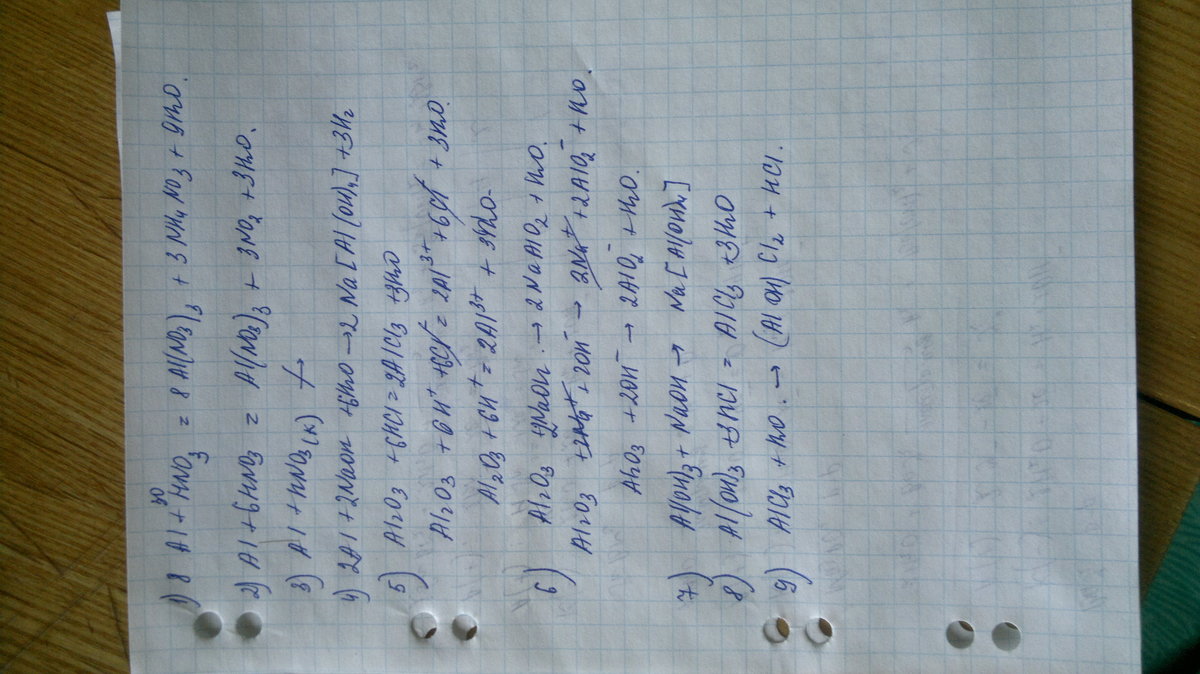 1) 8 Al + 30 HNO3 = 8 Al(NO3)3 + 3 NH4NO3 + 9H2O.
2) Al + 6HNO3 = Al(NO3)3 + 3NO2 + 3H2O.
3) Al + HNO3(к) ↛
4) 2Al + 2NaOH + 6H2O → 2 Na[Al(OH)4] + 3H2
5) Al2O3 + 6HCl = 2AlCl3 + 3H2O
Al2O3 + 6H+ + 6Cl- = 2Al3+ + 6Cl- + 3H2O.
Al2O3 + 6H+ = 2Al3+ + 3H2O.
6) Al2O3 + 2NaOH. → 2NaAlO2 + H2O.
Al2O3 + 2Na+ + 2OH- → 2Na+ + 2AlO2- + H2O.
Al2O3 + 2OH- → 2AlO2- + H2O.
7) Al(OH)3 + NaOH → Na[Al(OH)4]
8) Al(OH)3 + 3HCl = AlCl3 + 3H2O
9) AlCl3 + H2O. → (AlOH)Cl2 + HCl.